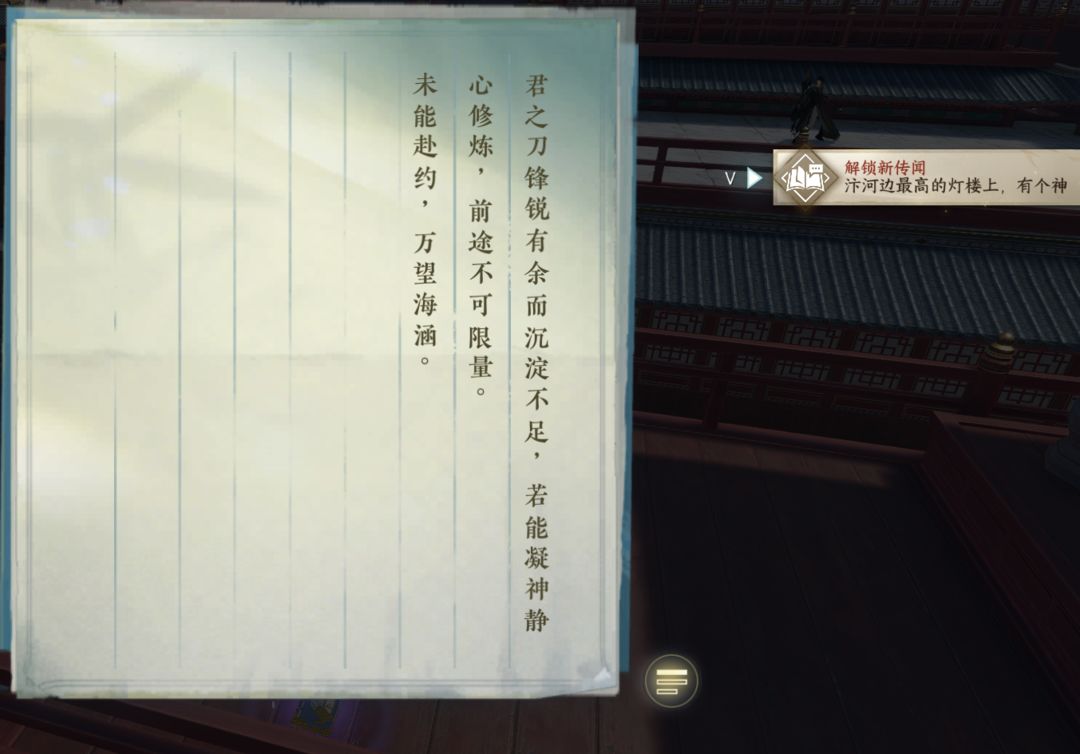 君之刀锋锐有余而沉淀不足，若能凝神静
心修炼，前途不可限量。
未能赴约，万望海涵。
V
解锁新传闻
汴河边最高的灯楼上，有个神